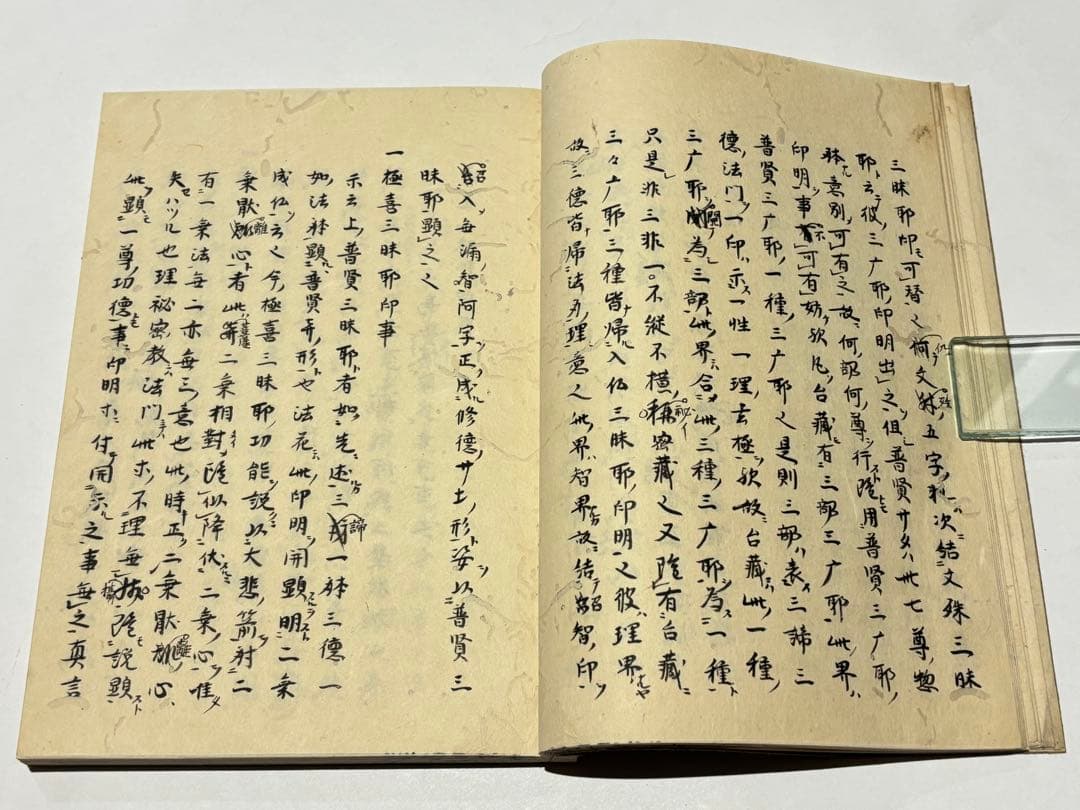 三昧耶印ニ可替之文殊五字ハ次結文殊三昧
耶ト云彼三广耶印明出之但普賢サタハ此七尊惣
躰意別可有之故何部何尊行ストモ隨用普賢三广耶
印明事不可有妨欤凡台藏有三部三广耶此界ハ
普賢三广耶一種三广耶之是則三部ハ表三諦三
德法門一印示一性一理去極欤故台藏此一種
三广耶開為三部此界ニハ合此三種三广耶為一種ト
只是非三非一不縱不横秘密藏之又隨有台藏
三々广耶三種皆歸入仏三昧耶印明之彼理界ルヤ
故三德皆歸法界理意之此界智界ナル故結召智印ッ
召入每漏智阿字正成修德サ土形姿以普賢三
昧耶顕之之
一極喜三昧耶印事
示云上普賢三昧耶者如先述三諦一躰三德一
如法躰顕普賢形也法花此印明開顕明二乗
成仏云之今極喜三昧耶功能説以大悲箭射二
乗厭離心者此等二乗相對隨似降伏二乗心唯
有一乗法每二亦每三意也此時正二乗厭離心
失ハツル也理秘密教法門此ホ不理每據隨説顕
此顕一尊功德事印明ホ付開示之事每之真言